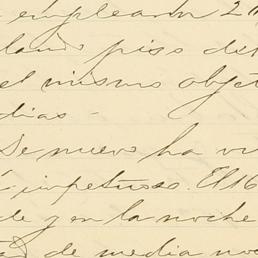 emplearon 2
piso de
el mismo objet
dias -
De nuevo ha
impetuoso. El 16
de y en la noche
de media no